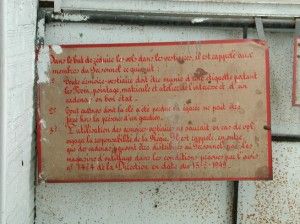 Dans le but de réduire les vols dans les vestiaires, il est rappelé aux
membres du Personnel ce qui suit :
1° Toute armoire-vestiaire doit être munie d'une étiquette portant
les Nom, pointage, matricule et atelier de l'intéressé et d'un
cadenas en bon état.
2° Tout cadenas dont la clé a été perdue ou égarée ne peut être
scié hors la présence d'un gardien.
3° L'utilisation des armoires-vestiaires ne saurait en cas de vol
engager la responsabilité de la Régie. Il est rappelé, en outre
que des cadenas peuvent être distribués au Personnel par les
magasins d'outillage dans les conditions prévues par l'avis
n° 1484 de la Direction en date du 15-2-1949.